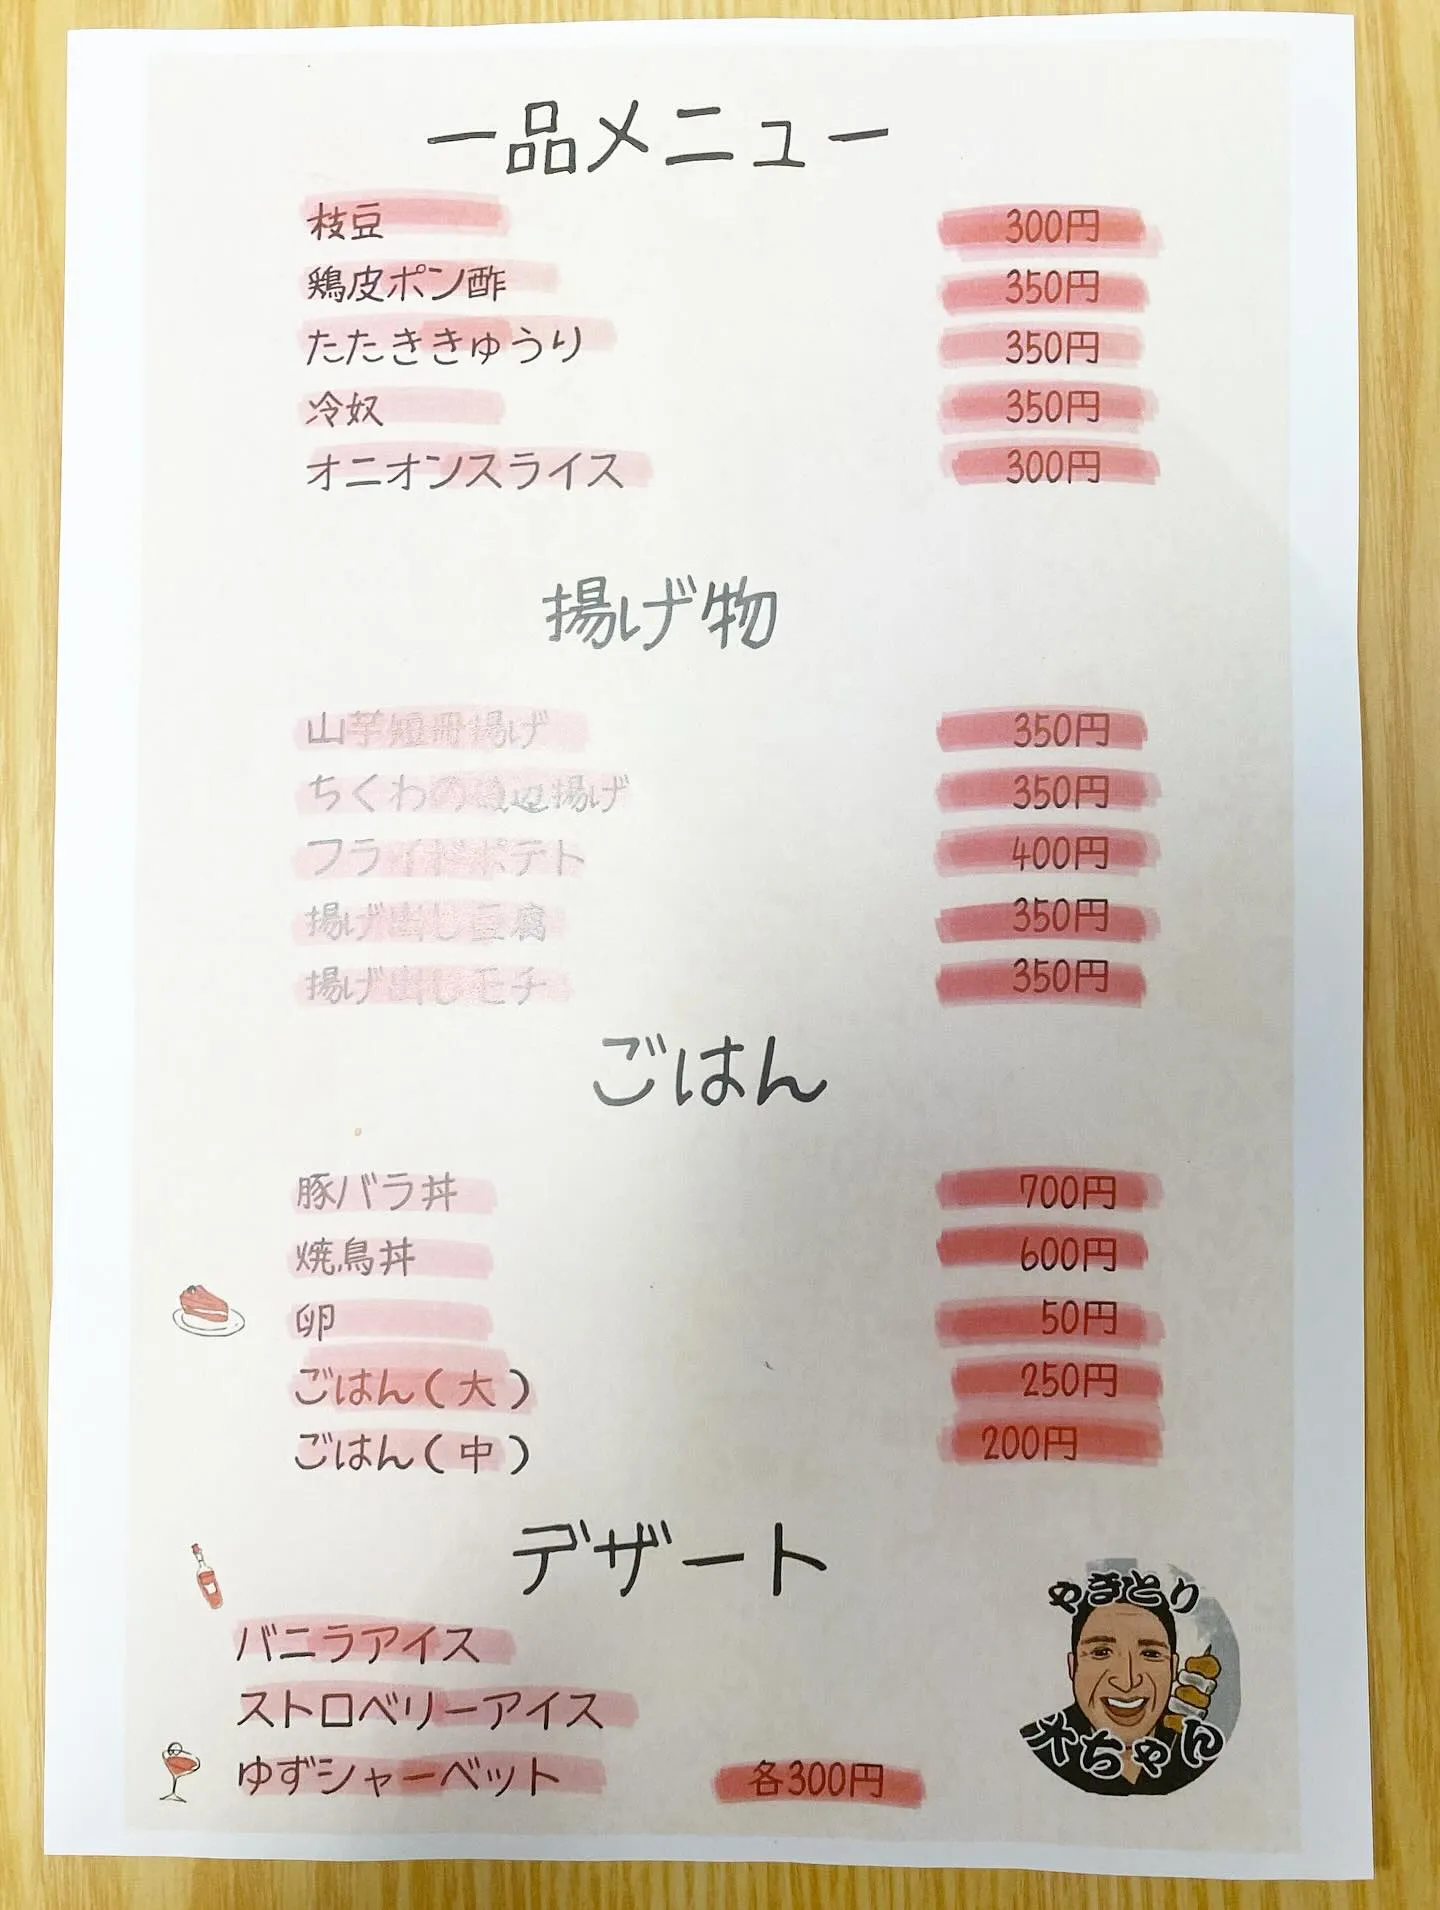 一品メニュー
枝豆 300円
鶏皮ポン酢 350円
たたききゅうり 350円
冷奴 350円
オニオンスライス 300円
揚げ物
山芋短冊揚げ 350円
ちくわの磯辺揚げ 350円
フライドポテト 400円
揚げ出し豆腐 350円
揚げ出しモチ 350円
ごはん
豚バラ丼 700円
焼鳥丼 600円
卵 50円
ごはん(大) 250円
ごはん(中) 200円
デザート
バニラアイス
ストロベリーアイス
ゆずシャーベット 各300円
やきとり
ちゃん